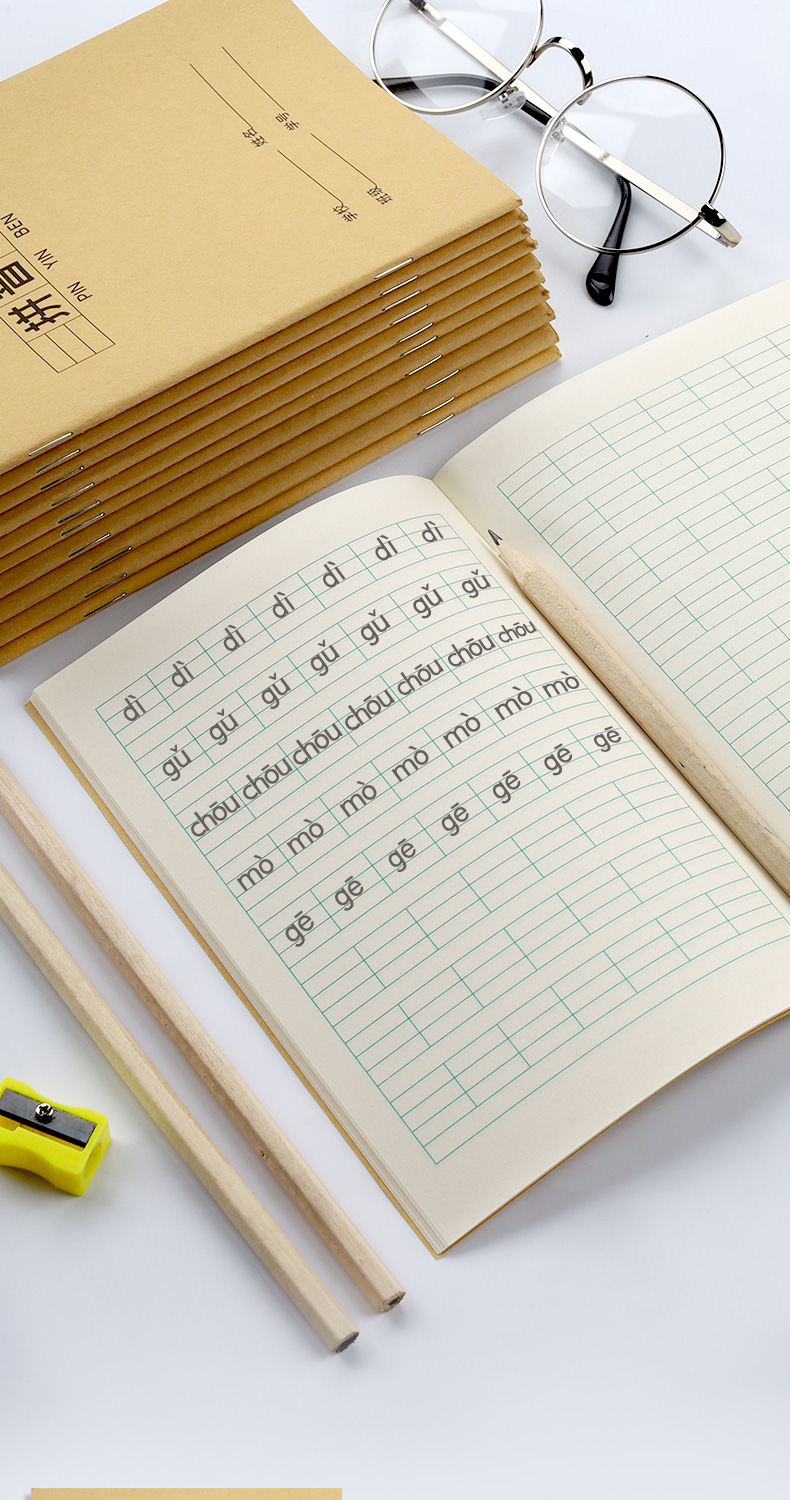 学号
姓名
班级
学校
PIN YIN BEN
拼音
dì dì dì dì dì dì dì
gǔ gǔ gǔ gǔ gǔ gǔ gǔ
chōu chōu chōu chōu chōu chōu chōu
mò mò mò mò mò mò mò
gē gē gē gē gē gē gē